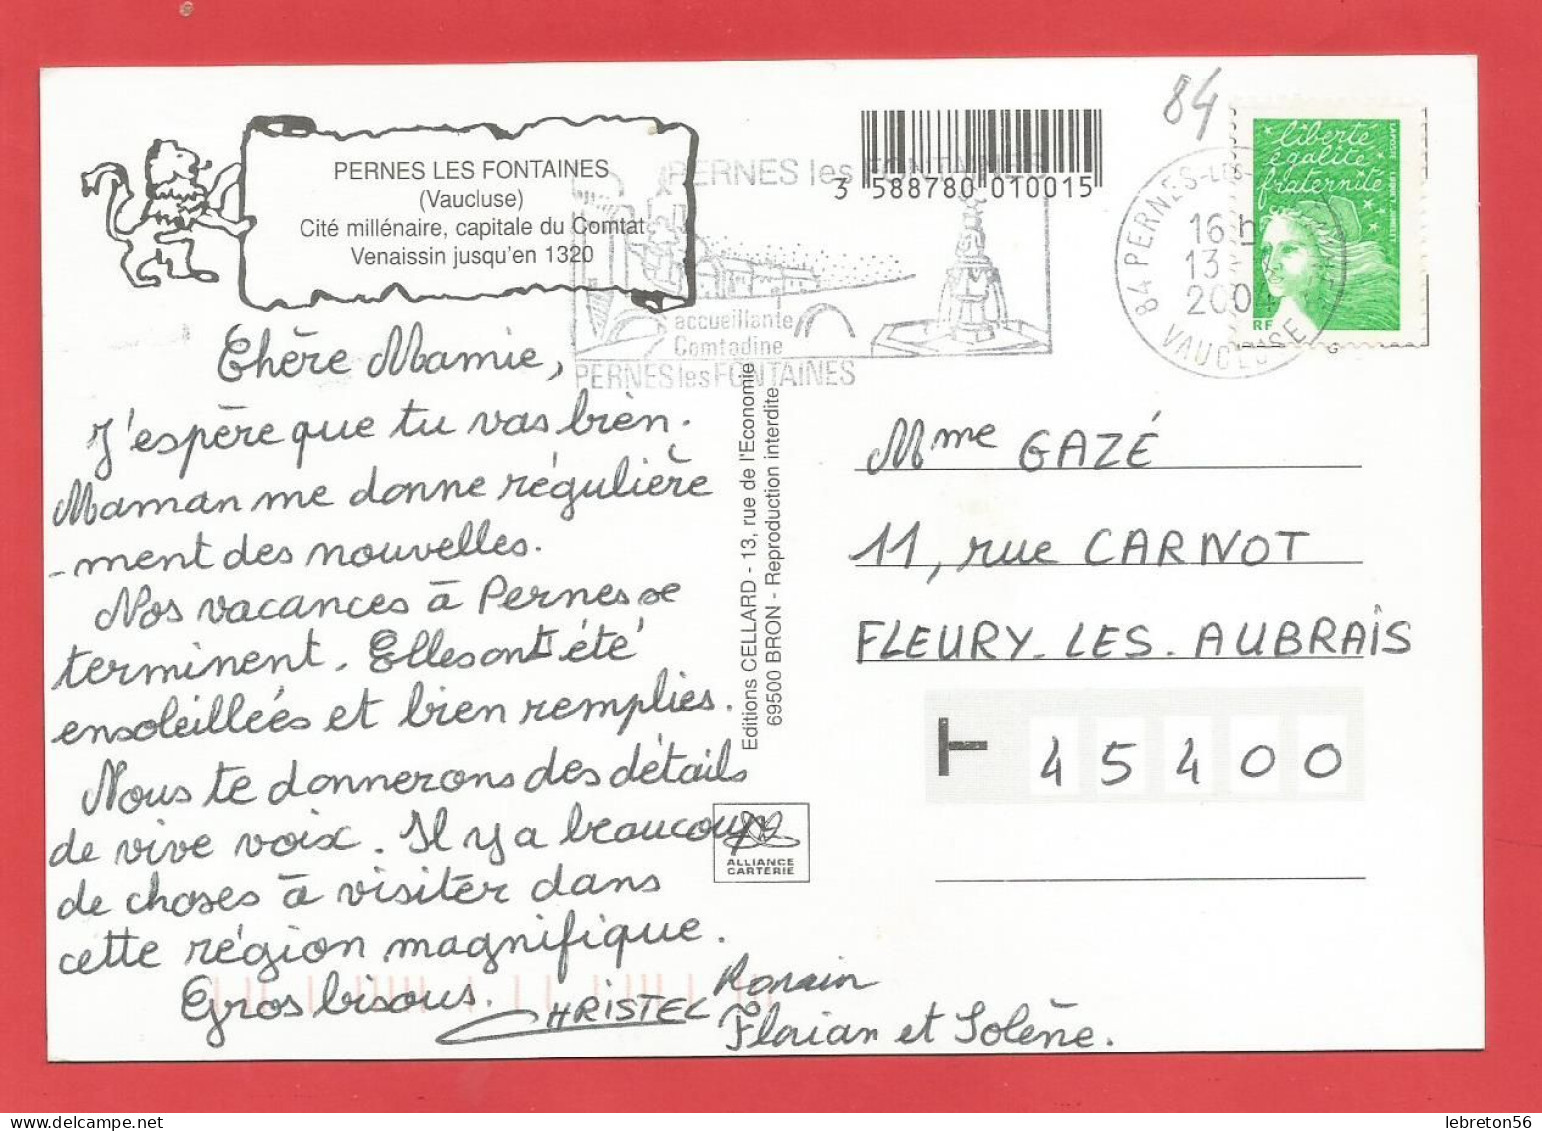 84
PERNES LES FONTAINES
(Vaucluse)
Cité millénaire, capitale du Comtat
Venaissin jusqu'en 1320
PERNES les FONTAINES
accueillante
Comtadine
PERNES les FONTAINES
3 588780 010015
84 PERNES-LES-
16 h
13
200
VAUCLUSE
liberté
égalité
fraternité
LAPOSTE
RF
Chère Mamie,
J'espère que tu vas bien.
Maman me donne régulière
-ment des nouvelles.
Nos vacances à Pernes se
terminent. Elles ont été
ensoleillées et bien remplies.
Nous te donnerons des détails
de vive voix. Il y a beaucoup
de choses à visiter dans
cette région magnifique.
Gros bisous. CHRISTEL Romain
Florian et Solène.
Editions CELLARD - 13, rue de l'Economie
69500 BRON - Reproduction interdite
ALLIANCE
CARTERIE
Mme GAZÉ
11, rue CARNOT
FLEURY-LES-AUBRAIS
45400
lebreton56